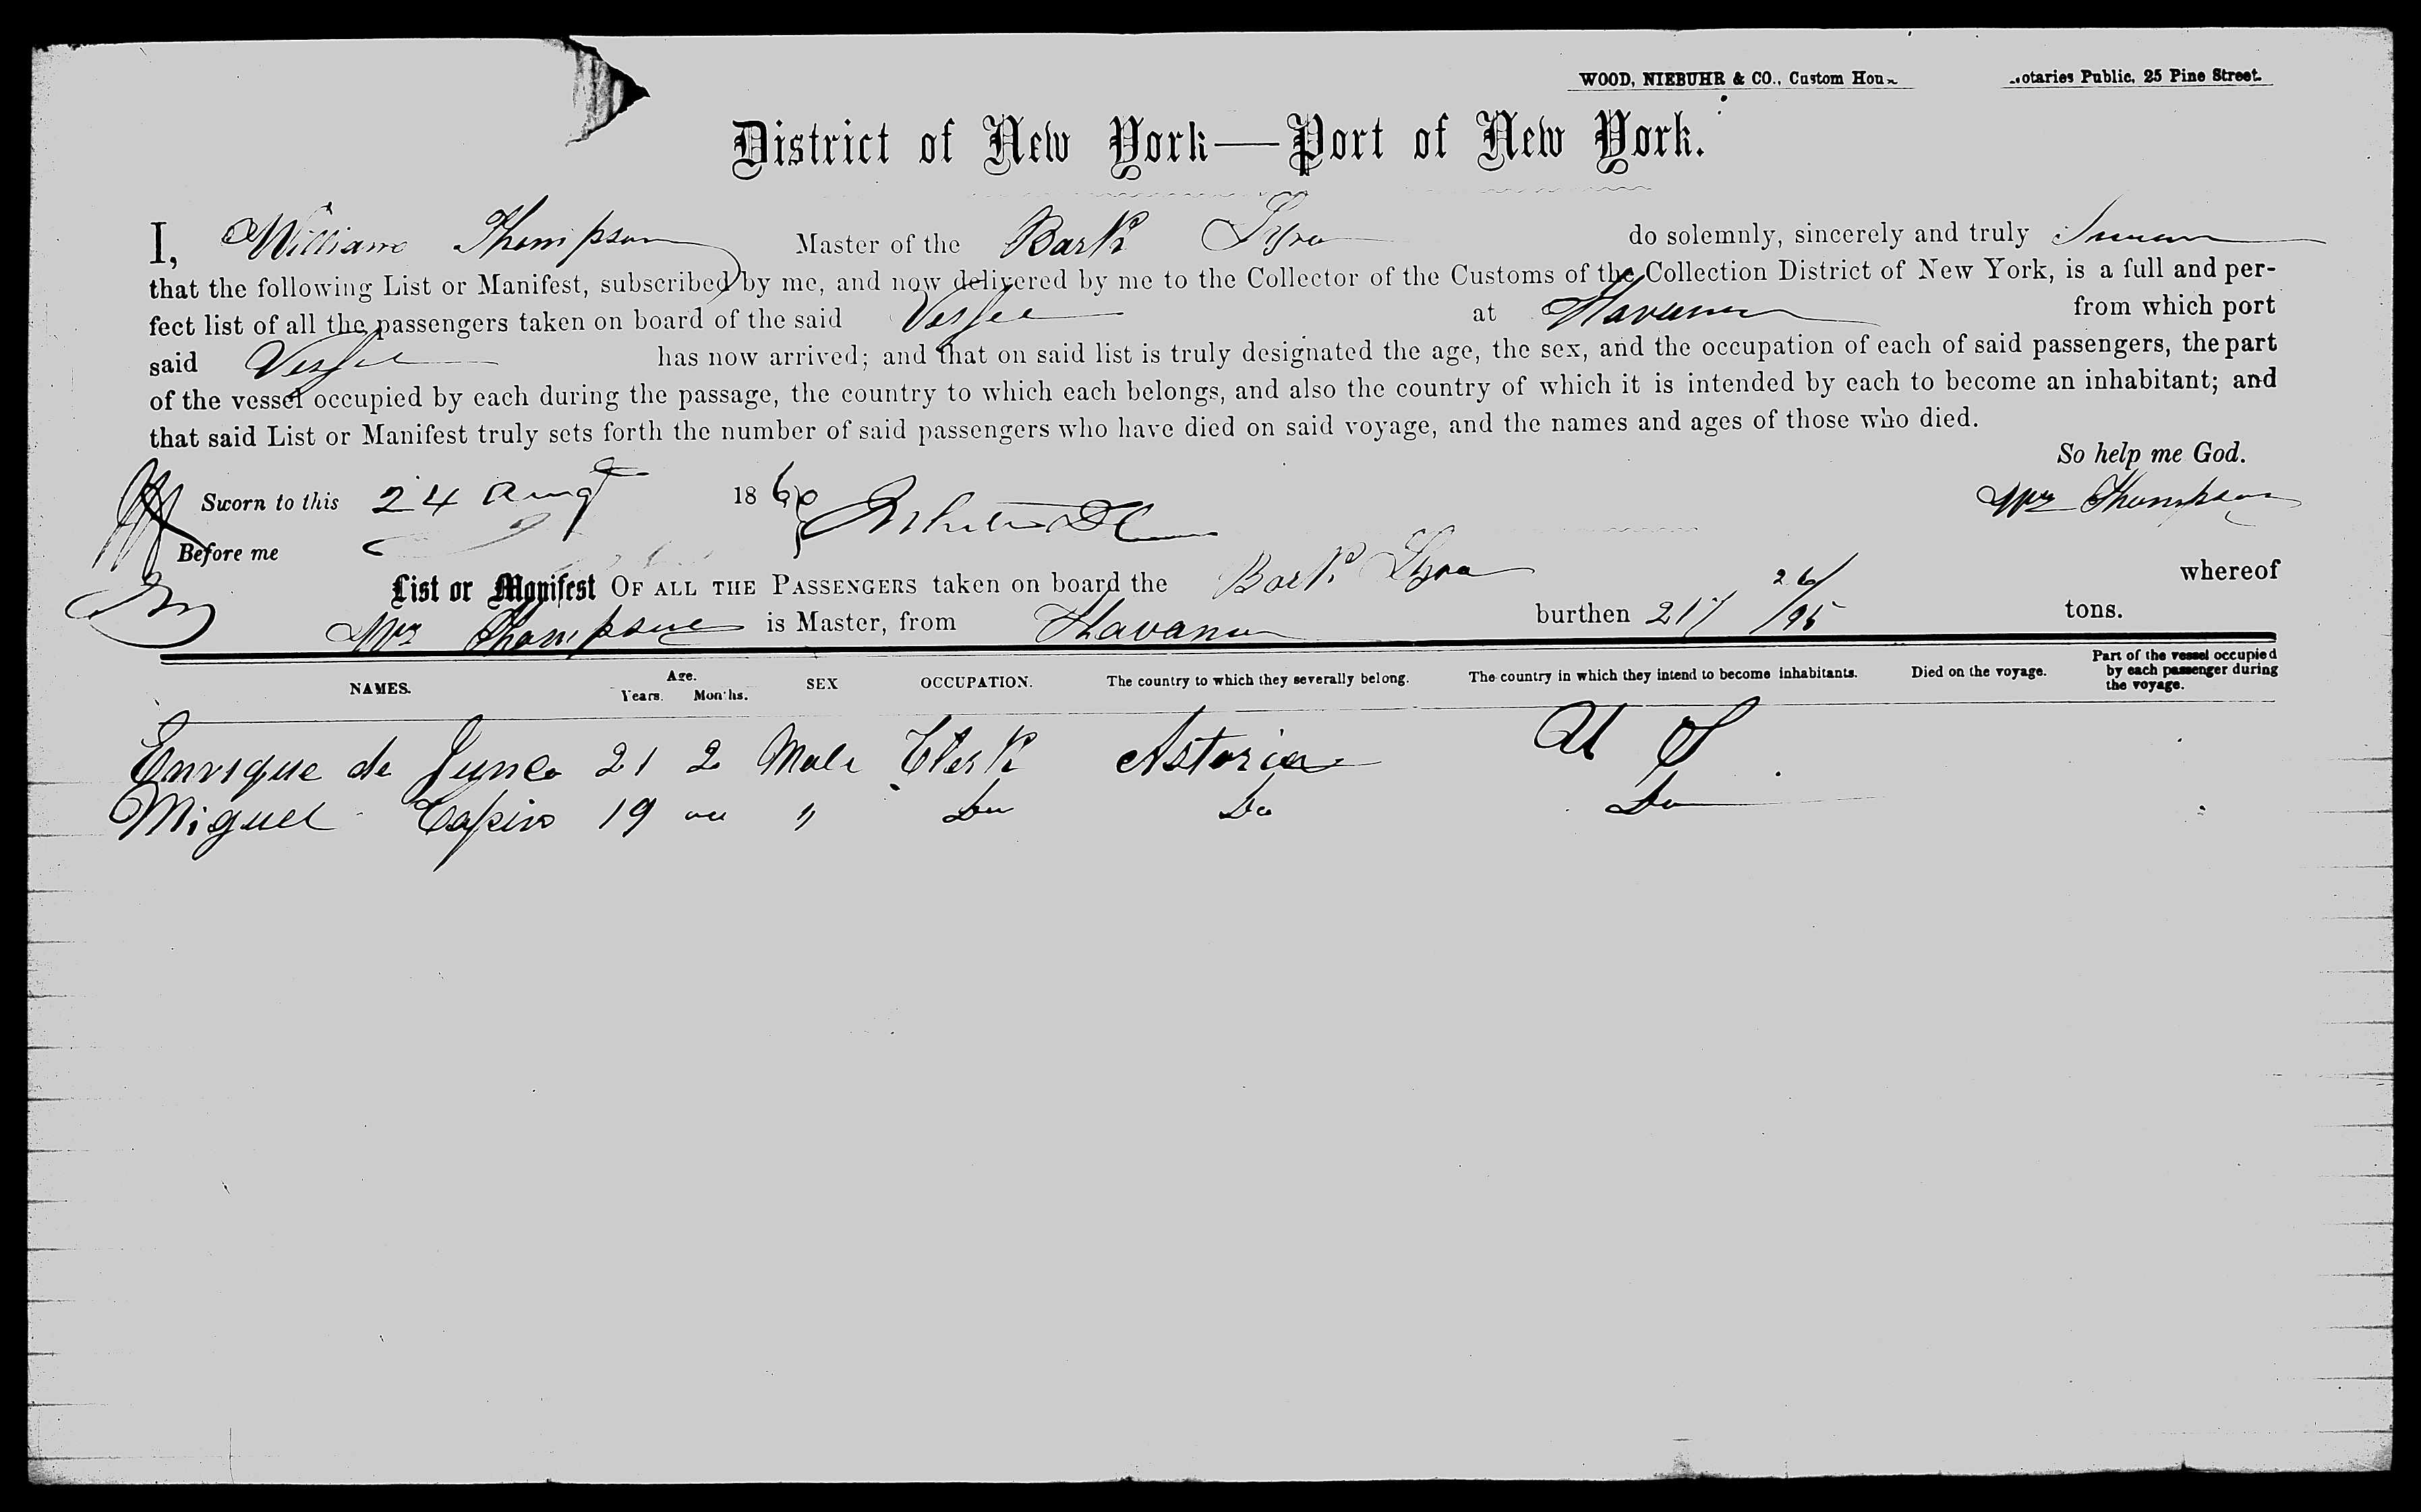 WOOD, NIEBUHR & CO., Custom Hou otaries Public, 25 Pine Street.
District of New York—Port of New York.
I, William Thompson Master of the Bark Lyra do solemnly, sincerely and truly Swear
that the following List or Manifest, subscribed by me, and now delivered by me to the Collector of the Customs of the Collection District of New York, is a full and per-
fect list of all the passengers taken on board of the said Vessel at Havana from which port
said Vessel has now arrived; and that on said list is truly designated the age, the sex, and the occupation of each of said passengers, the part
of the vessel occupied by each during the passage, the country to which each belongs, and also the country of which it is intended by each to become an inhabitant; and
that said List or Manifest truly sets forth the number of said passengers who have died on said voyage, and the names and ages of those who died.
So help me God.
Sworn to this 24 Augt 1860 Wm Thompson
Before me
List or Manifest OF ALL THE PASSENGERS taken on board the Bark Lyra whereof
Wm Thompson is Master, from Havana burthen 217 26/95 tons.
NAMES. Age. Years. Months. SEX OCCUPATION. The country to which they severally belong. The country in which they intend to become inhabitants. Died on the voyage. Part of the vessel occupied by each passenger during the voyage.
Enrique de Junco 21 2 Male Clerk Astoria U S
Miguel 19 " Do Do Do